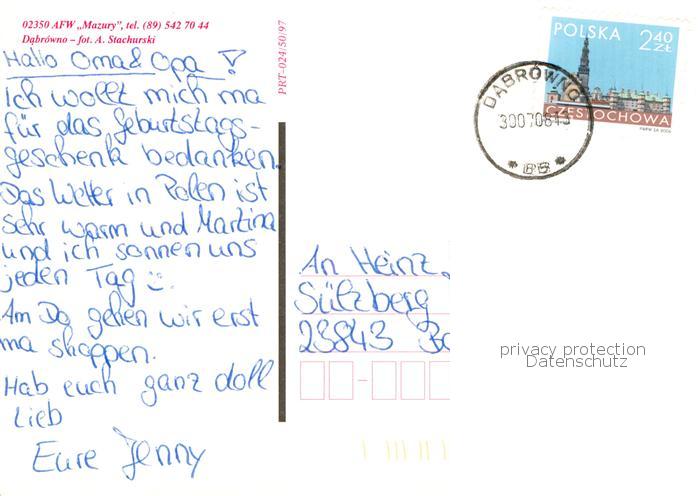 02350 AFW „Mazury", tel. (89) 542 70 44
Dąbrówno – fot. A. Stachurski
Hallo Oma & Opa !
Ich wollt mich ma
für das Geburtstags-
geschenk bedanken.
Das Wetter in Polen ist
sehr warm und Martina
und ich sonnen uns
jeden Tag
Am Do gehen wir erst
ma shoppen.
Hab euch ganz doll
Lieb
Eure Jenny
PRT-024/50/97
POLSKA 2,40 ZŁ
CZĘSTOCHOWA
PWPW SA 2005
DĄBRÓWNO
An Heinz
Sülzberg
23843
privacy protection
Datenschutz